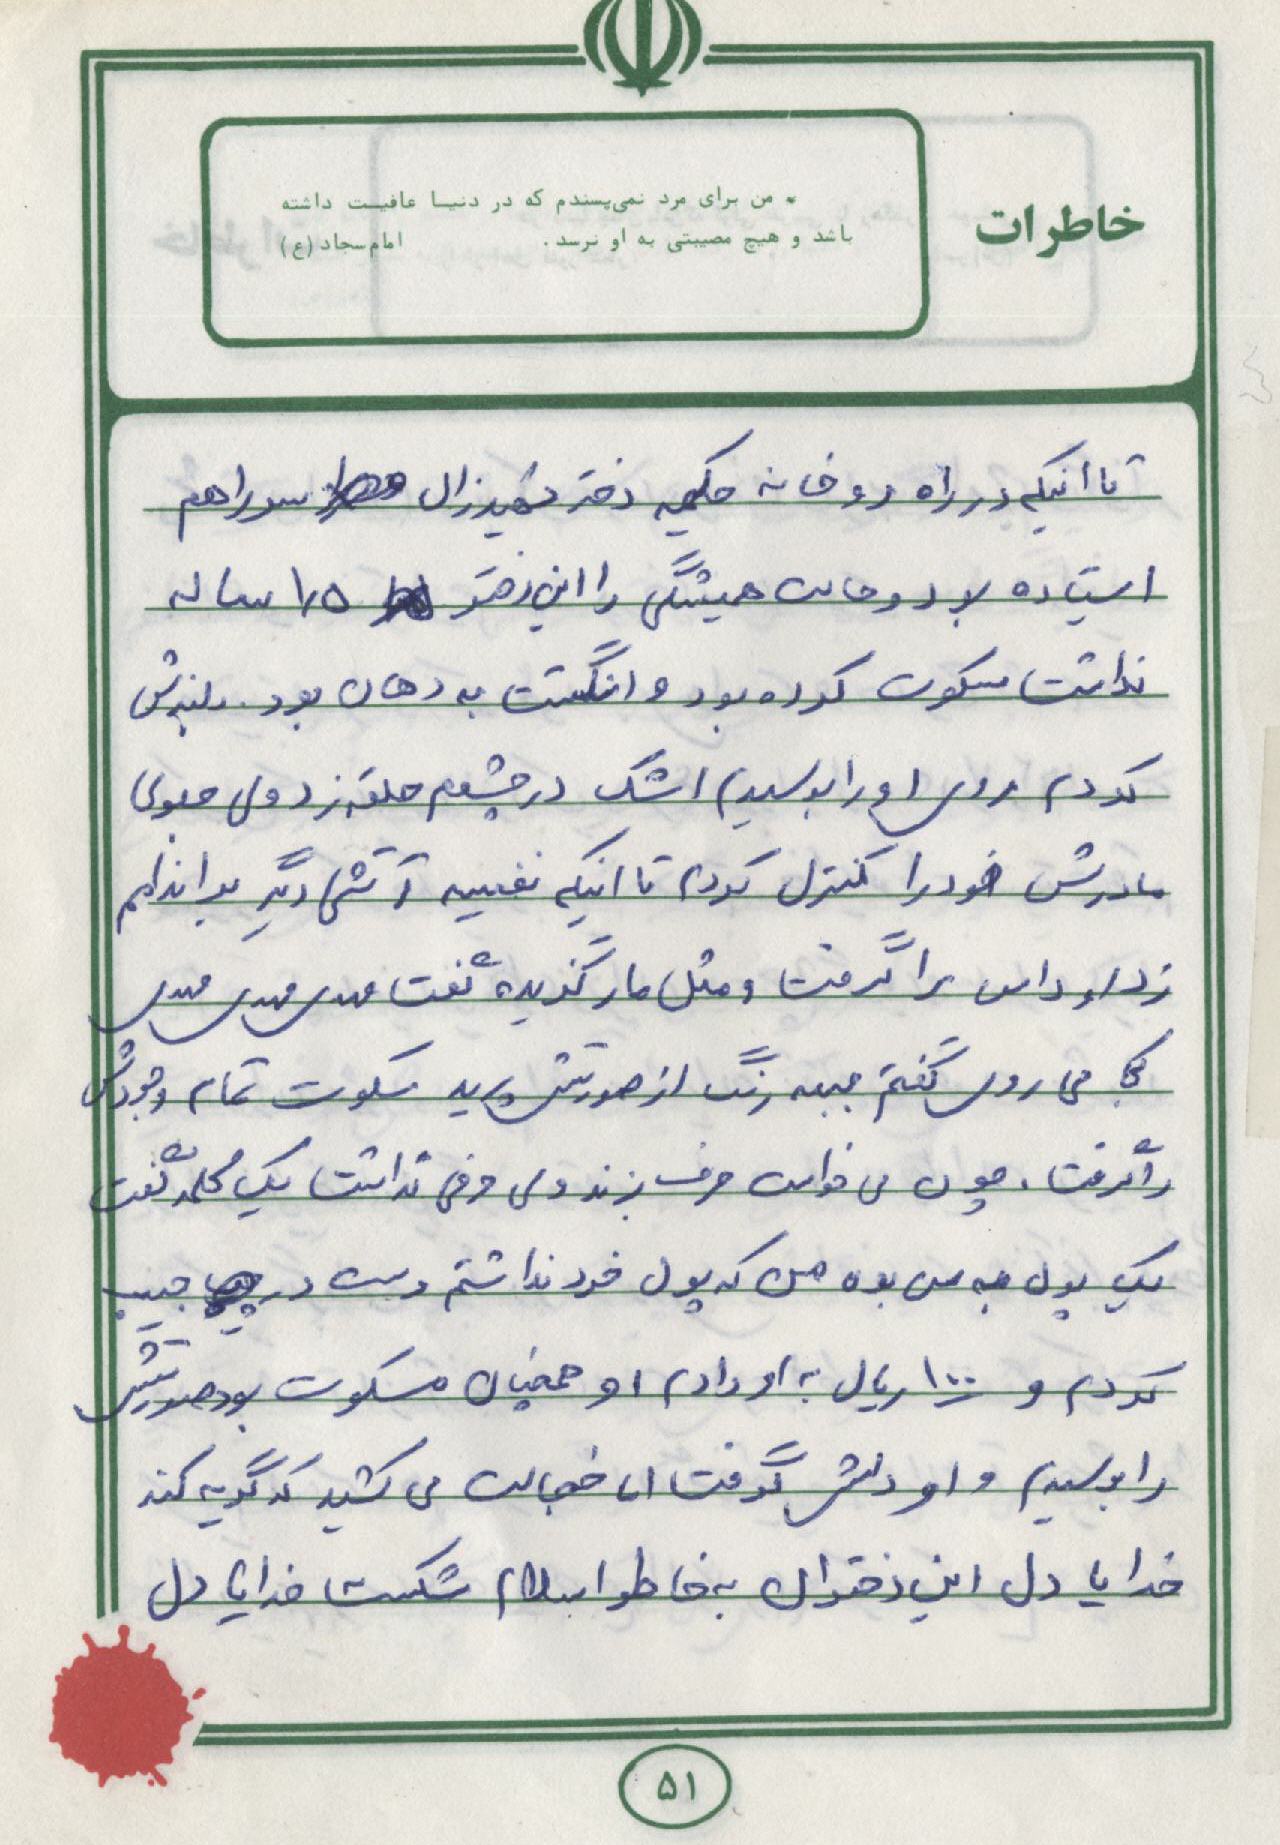 خاطرات
* من برای مرد نمی‌پسندم که در دنیا عافیت داشته
باشد و هیچ مصیبتی به او نرسد. امام سجاد (ع)
تا اینکه در راه رودخانه حکیمه دختر شهید زال سر راهم
ایستاده بود و حالت همیشگی را این دختر ۱۵ ساله
نداشت سکوت کرده بود و انگشت به دهان بود. بلندش
کردم روی او را بوسیدم اشک در چشمم حلقه زد ولی جلوی
مادرش خود را کنترل کردم تا اینکه نفیسه آتشی دیگر بر اندامم
زد او داس را گرفت و مثل مار گزیده گفت مهدی مهدی مهدی
کجا می روی گفتم جبهه رنگ از صورتش پرید سکوت تمام وجودش
را گرفت. چون می خواست حرف بزند ولی حرفی نداشت یک کلمه گفت
یک پول به من بده من که پول خرد نداشتم دست در جیب
کردم و ۱۰۰ ریال به او دادم او همچنان مسکوت بود صورتش
را بوسیدم و او دلش گرفت اما خجالت می کشید که گریه کند
خدایا دل این دختران به خاطر اسلام شکست خدایا دل
۵۱